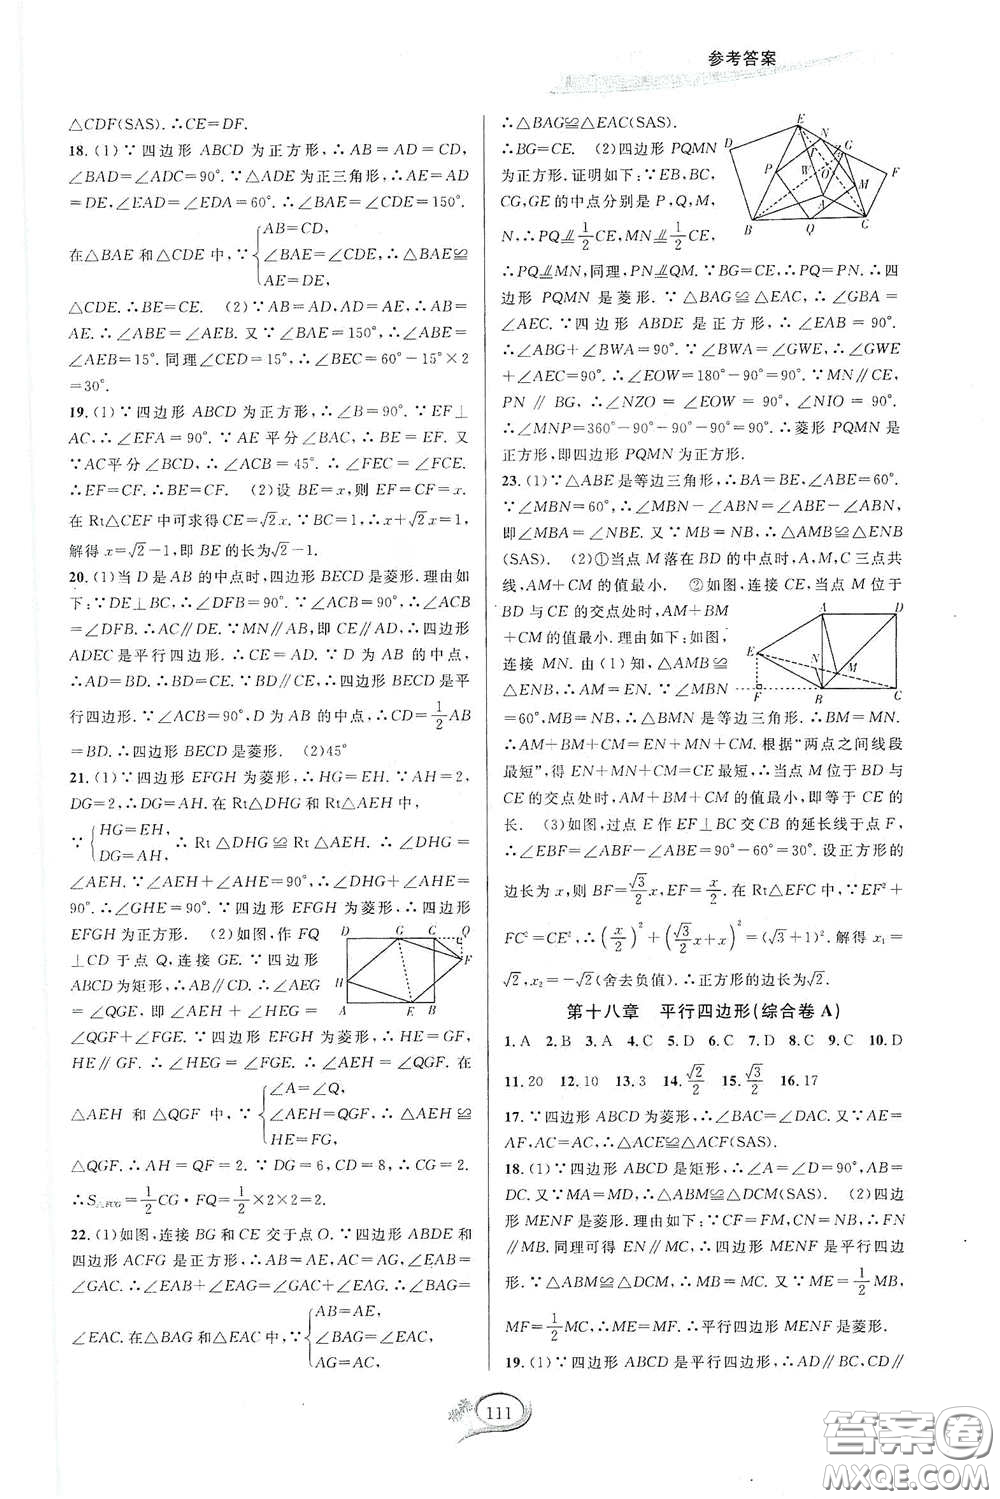 参考答案
△CDF(SAS). ∴CE=DF.
18. (1)∵四边形 ABCD 为正方形,∴AB=AD=CD,
∠BAD=∠ADC=90°. ∵△ADE为正三角形,∴AE=AD
=DE,∠EAD=∠EDA=60°. ∴∠BAE=∠CDE=150°.
AB=CD,
在△BAE 和△CDE 中,∵{∠BAE=∠CDE,∴△BAE≌
AE=DE,
△CDE. ∴BE=CE. (2)∵AB=AD,AD=AE,∴AB=
AE. ∴∠ABE=∠AEB. 又∵∠BAE=150°,∴∠ABE=
∠AEB=15°. 同理∠CED=15°. ∴∠BEC=60°-15°×2
=30°.
19. (1)∵四边形 ABCD 为正方形,∴∠B=90°. ∵EF⊥
AC,∴∠EFA=90°. ∵AE 平分∠BAC,∴BE=EF. 又
∵AC平分∠BCD,∴∠ACB=45°. ∴∠FEC=∠FCE.
∴EF=CF. ∴BE=CF. (2)设 BE=x,则 EF=CF=x.
在 Rt△CEF 中可求得 CE=√2x. ∵BC=1,∴x+√2x=1,
解得 x=√2-1,即 BE 的长为√2-1.
20. (1)当 D 是AB 的中点时,四边形 BECD 是菱形. 理由如
下:∵DE⊥BC,∴∠DFB=90°. ∵∠ACB=90°,∴∠ACB=
∠DFB. ∴AC∥DE. ∵MN∥AB,即 CE∥AD,∴四边形
ADEC 是平行四边形. ∴CE=AD. ∵D 为 AB 的中点,
∴AD=BD. ∴BD=CE. ∵BD∥CE,∴四边形 BECD 是平
行四边形. ∵∠ACB=90°,D 为 AB 的中点,∴CD=1/2AB
=BD. ∴四边形 BECD 是菱形. (2)45°
21. (1)∵四边形 EFGH 为菱形,∴HG=EH. ∵AH=2,
DG=2,∴DG=AH. 在 Rt△DHG 和 Rt△AEH 中,
HG=EH,
∵{ ∴Rt△DHG≌Rt△AEH. ∴∠DHG=
DG=AH,
∠AEH. ∵∠AEH+∠AHE=90°,∴∠DHG+∠AHE=
90°. ∴∠GHE=90°. ∵四边形 EFGH 为菱形,∴四边形
EFGH 为正方形. (2)如图,作 FQ
⊥CD 于点 Q,连接 GE. ∵四边形
ABCD 为矩形,∴AB∥CD. ∴∠AEG
=∠QGE,即∠AEH+∠HEG=
∠QGF+∠FGE. ∵四边形 EFGH 为菱形,∴HE=GF,
HE∥GF. ∴∠HEG=∠FGE. ∴∠AEH=∠QGF. 在
∠A=∠Q,
△AEH 和△QGF 中,∵{∠AEH=∠QGF,∴△AEH≌
HE=FG,
△QGF. ∴AH=QF=2. ∵DG=6,CD=8,∴CG=2.
∴S△FCG=1/2CG·FQ=1/2×2×2=2.
22. (1)如图,连接 BG 和 CE 交于点 O. ∵四边形 ABDE 和
四边形 ACFG 是正方形,∴AB=AE,AC=AG,∠EAB=
∠GAC. ∴∠EAB+∠EAG=∠GAC+∠EAG. ∴∠BAG=
AB=AE,
∠EAC. 在△BAG 和△EAC 中,∵{∠BAG=∠EAC,
AG=AC,
∴△BAG≌△EAC(SAS).
∴BG=CE. (2)四边形 PQMN
为正方形. 证明如下:∵EB,BC,
CG,GE 的中点分别是 P,Q,M,
N,∴PQ∥=1/2CE,MN∥=1/2CE,
∴PQ∥=MN,同理,PN∥=QM. ∵BG=CE,∴PQ=PN. ∴四
边形 PQMN 是菱形. ∵△BAG≌△EAC,∴∠GBA=
∠AEC. ∵四边形 ABDE 是正方形,∴∠EAB=90°.
∴∠ABG+∠BWA=90°. ∵∠BWA=∠GWE,∴∠GWE
+∠AEC=90°. ∴∠EOW=180°-90°=90°. ∵MN∥CE,
PN∥BG,∴∠NZO=∠EOW=90°,∠NIO=90°.
∴∠MNP=360°-90°-90°-90°=90°. ∴菱形 PQMN 是
正方形,即四边形 PQMN 为正方形.
23. (1)∵△ABE 是等边三角形,∴BA=BE,∠ABE=60°.
∵∠MBN=60°,∴∠MBN-∠ABN=∠ABE-∠ABN,
即∠MBA=∠NBE. 又∵MB=NB,∴△AMB≌△ENB
(SAS). (2)①当点 M 落在 BD 的中点时,A,M,C 三点共
线,AM+CM 的值最小. ②如图,连接 CE,当点 M 位于
BD 与 CE 的交点处时,AM+BM
+CM 的值最小. 理由如下:如图,
连接 MN. 由(1)知,△AMB≌
△ENB,∴AM=EN. ∵∠MBN
=60°,MB=NB,∴△BMN 是等边三角形. ∴BM=MN.
∴AM+BM+CM=EN+MN+CM. 根据“两点之间线段
最短”,得 EN+MN+CM=CE 最短,∴当点 M 位于 BD 与
CE 的交点处时,AM+BM+CM 的值最小,即等于 CE 的
长. (3)如图,过点 E 作 EF⊥BC 交 CB 的延长线于点 F,
∴∠EBF=∠ABF-∠ABE=90°-60°=30°. 设正方形的
边长为 x,则 BF=√3/2x,EF=x/2. 在 Rt△EFC 中,∵EF²+
FC²=CE²,∴(x/2)²+(√3/2x+x)²=(√3+1)². 解得 x₁=
√2,x₂=-√2(舍去负值). ∴正方形的边长为√2.
第十八章 平行四边形(综合卷 A)
1. A 2. B 3. A 4. C 5. D 6. D 7. B 8. C 9. C 10. D
11. 20 12. 10 13. 3 14. √2/2 15. √3/2 16. 17
17. ∵四边形 ABCD 为菱形,∴∠BAC=∠DAC. 又∵AE=
AF,AC=AC,∴△ACE≌△ACF(SAS).
18. (1)∵四边形 ABCD 是矩形,∴∠A=∠D=90°,AB=
DC. 又∵MA=MD,∴△ABM≌△DCM(SAS). (2)四边
形 MENF 是菱形. 理由如下:∵CF=FM,CN=NB,∴FN
∥MB. 同理可得 EN∥MC,∴四边形 MENF 是平行四边
形. ∵△ABM≌△DCM,∴MB=MC. 又∵ME=1/2MB,
MF=1/2MC,∴ME=MF. ∴平行四边形 MENF 是菱形.
19. (1)∵四边形 ABCD 是平行四边形,∴AD∥BC,CD∥
111
答案圈
MXQE.COM